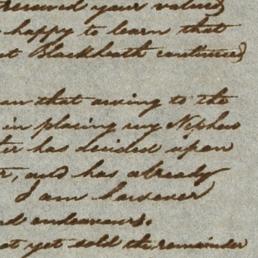 received your valued
happy to learn that
at Blackheath continued
that owing to the
in placing my Nephew
has decided upon
and has already
I am however
endeavours.
not yet sold the remainder